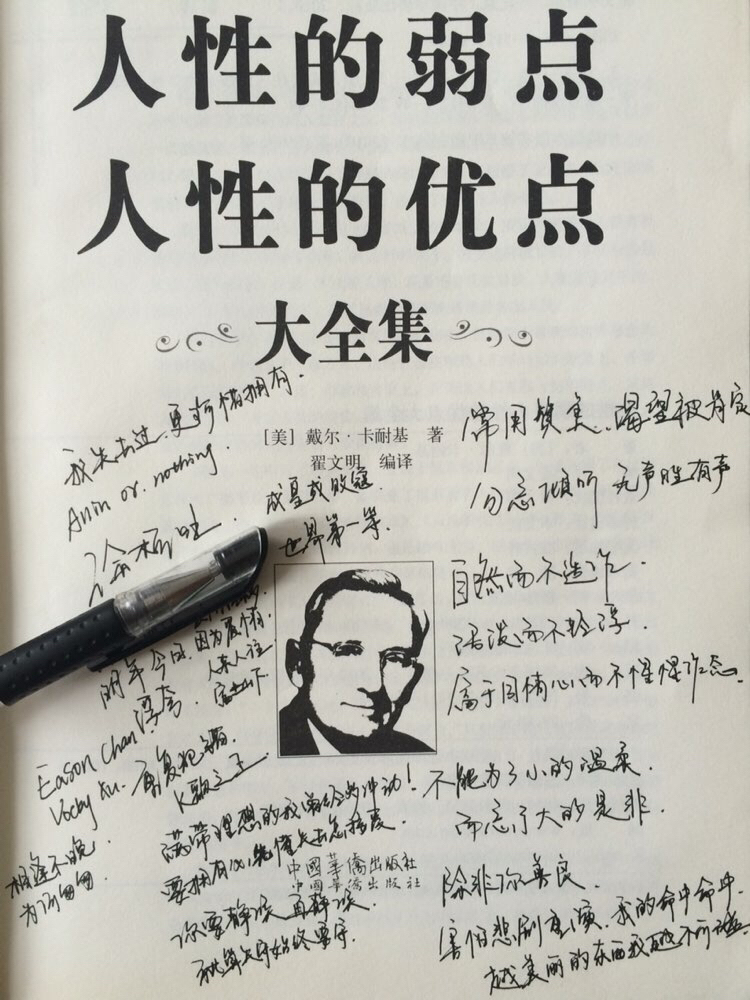 人性的弱点
人性的优点
大全集
[美] 戴尔·卡耐基 著
翟文明 编译
我失去过,更珍惜拥有.
Anin or nothing.
成皇或败寇.
世界第一等.
常用赞美、渴望被肯定
勿忘倾听 无声胜有声
自然而不造作.
活泼而不轻浮
富于同情心而不惺惺作态
因为爱情.
明年今日.
人来人往
浮夸.
富士山下
Eason Chan
Vocky Xu.
K歌之王
相逢不晚
为何匆匆
满带理想的我曾经多冲动!
要拥有必先懂失去怎接受
你要静候 再静候
就算失守始终要守
中國華僑出版社
中国华侨出版社
不能为了小的温柔.
而忘了大的是非.
除非你善良.
害怕悲剧重演.我的命中命中.
越美丽的东西我越不可碰.